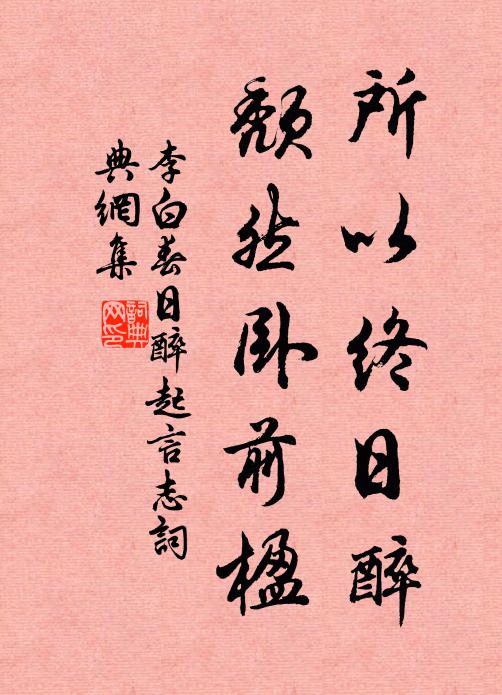 所以終日醉
頹然臥前楹
李白春日醉起言志詞
典網集
詞典
网印